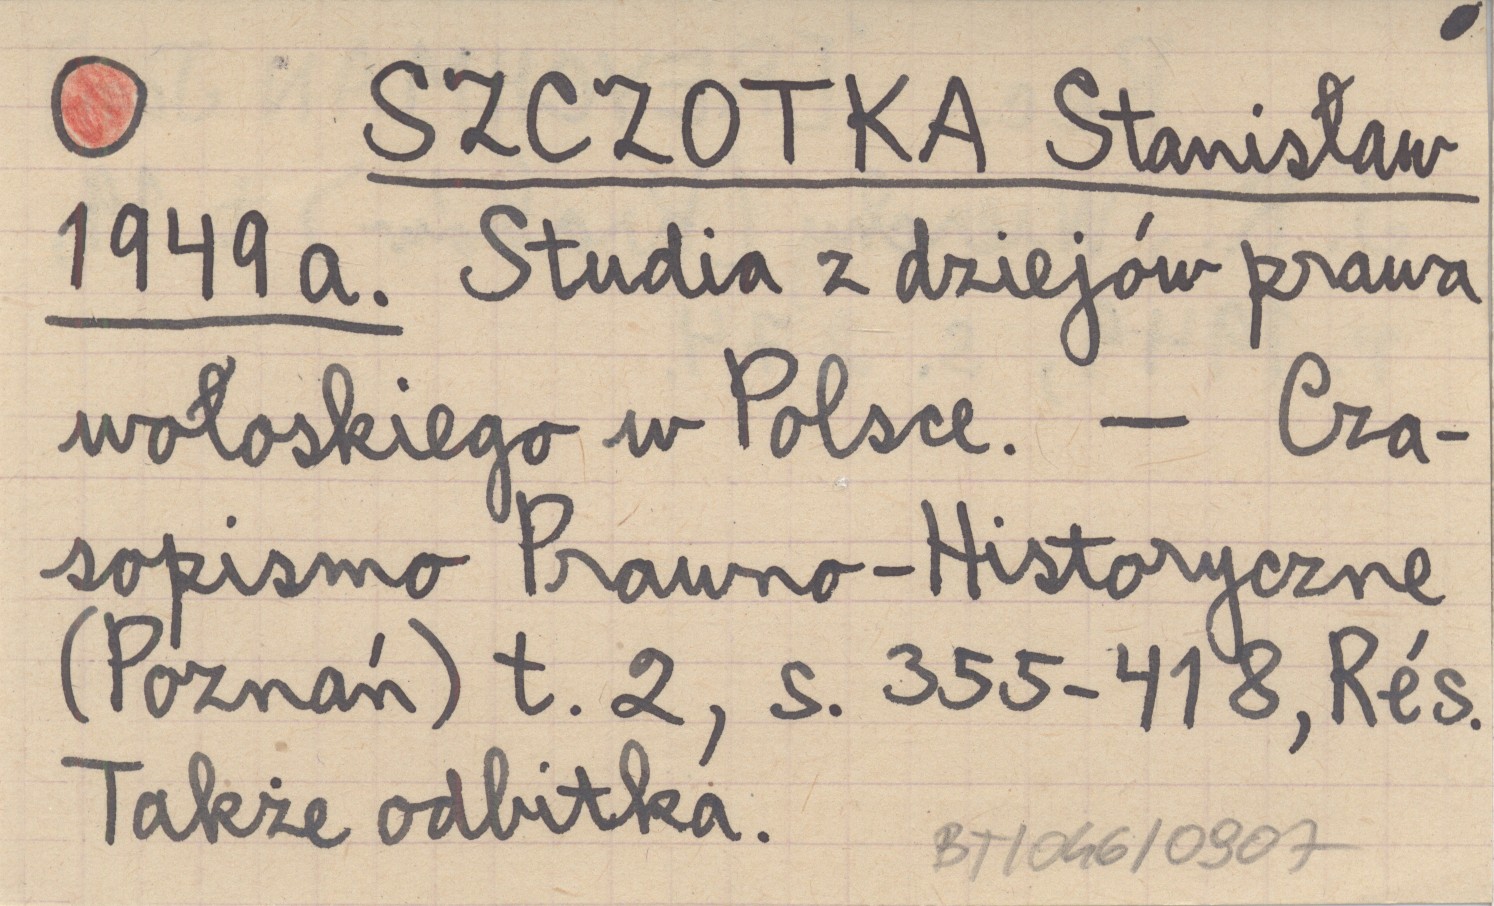 SZCZOTKA Stanisław
1949a. Studia z dziejów prawa
wołoskiego w Polsce. — Cza-
sopismo Prawno-Historyczne
(Poznań) t. 2, s. 355-418, Rés.
Także odbitka.
BT/046/0907